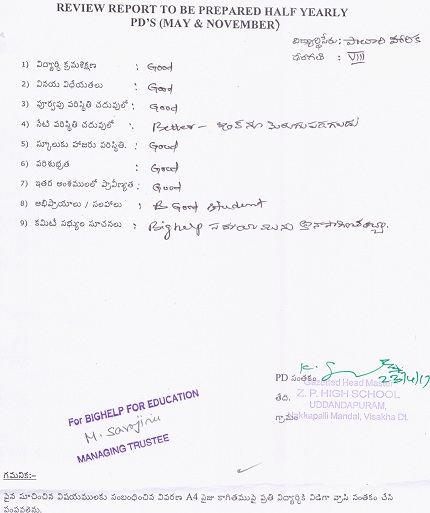 REVIEW REPORT TO BE PREPARED HALF YEARLY
PD'S (MAY & NOVEMBER)
విద్యార్థిపేరు:
తరగతి : VIII
1) విద్యార్థి క్రమశిక్షణ : Good
2) వినయ విధేయతలు : Good
3) పూర్వపు పరిస్థితి చదువులో : Good
4) నేటి పరిస్థితి చదువులో : Better –
5) స్కూలుకు హాజరు పరిస్థితి. : Good
6) పరిశుభ్రత : Good
7) ఇతర అంశములలో ప్రావీణ్యత : Good
8) అభిప్రాయాలు / సలహాలు : B Good student
9) కమిటీ సభ్యుల సూచనలు : Bighelp
PD సంతకం
Gazetted Head Master
తేది. Z. P. HIGH SCHOOL
UDDANDAPURAM,
గ్రామం Nakkapalli Mandal, Visakha Dt.
For BIGHELP FOR EDUCATION
M. Sarojini
MANAGING TRUSTEE
గమనిక:–
పైన సూచించిన విషయములకు సంబంధించిన వివరణ A4 సైజు కాగితముపై ప్రతి విద్యార్థికి విడిగా వ్రాసి సంతకం చేసి
పంపవలెను.